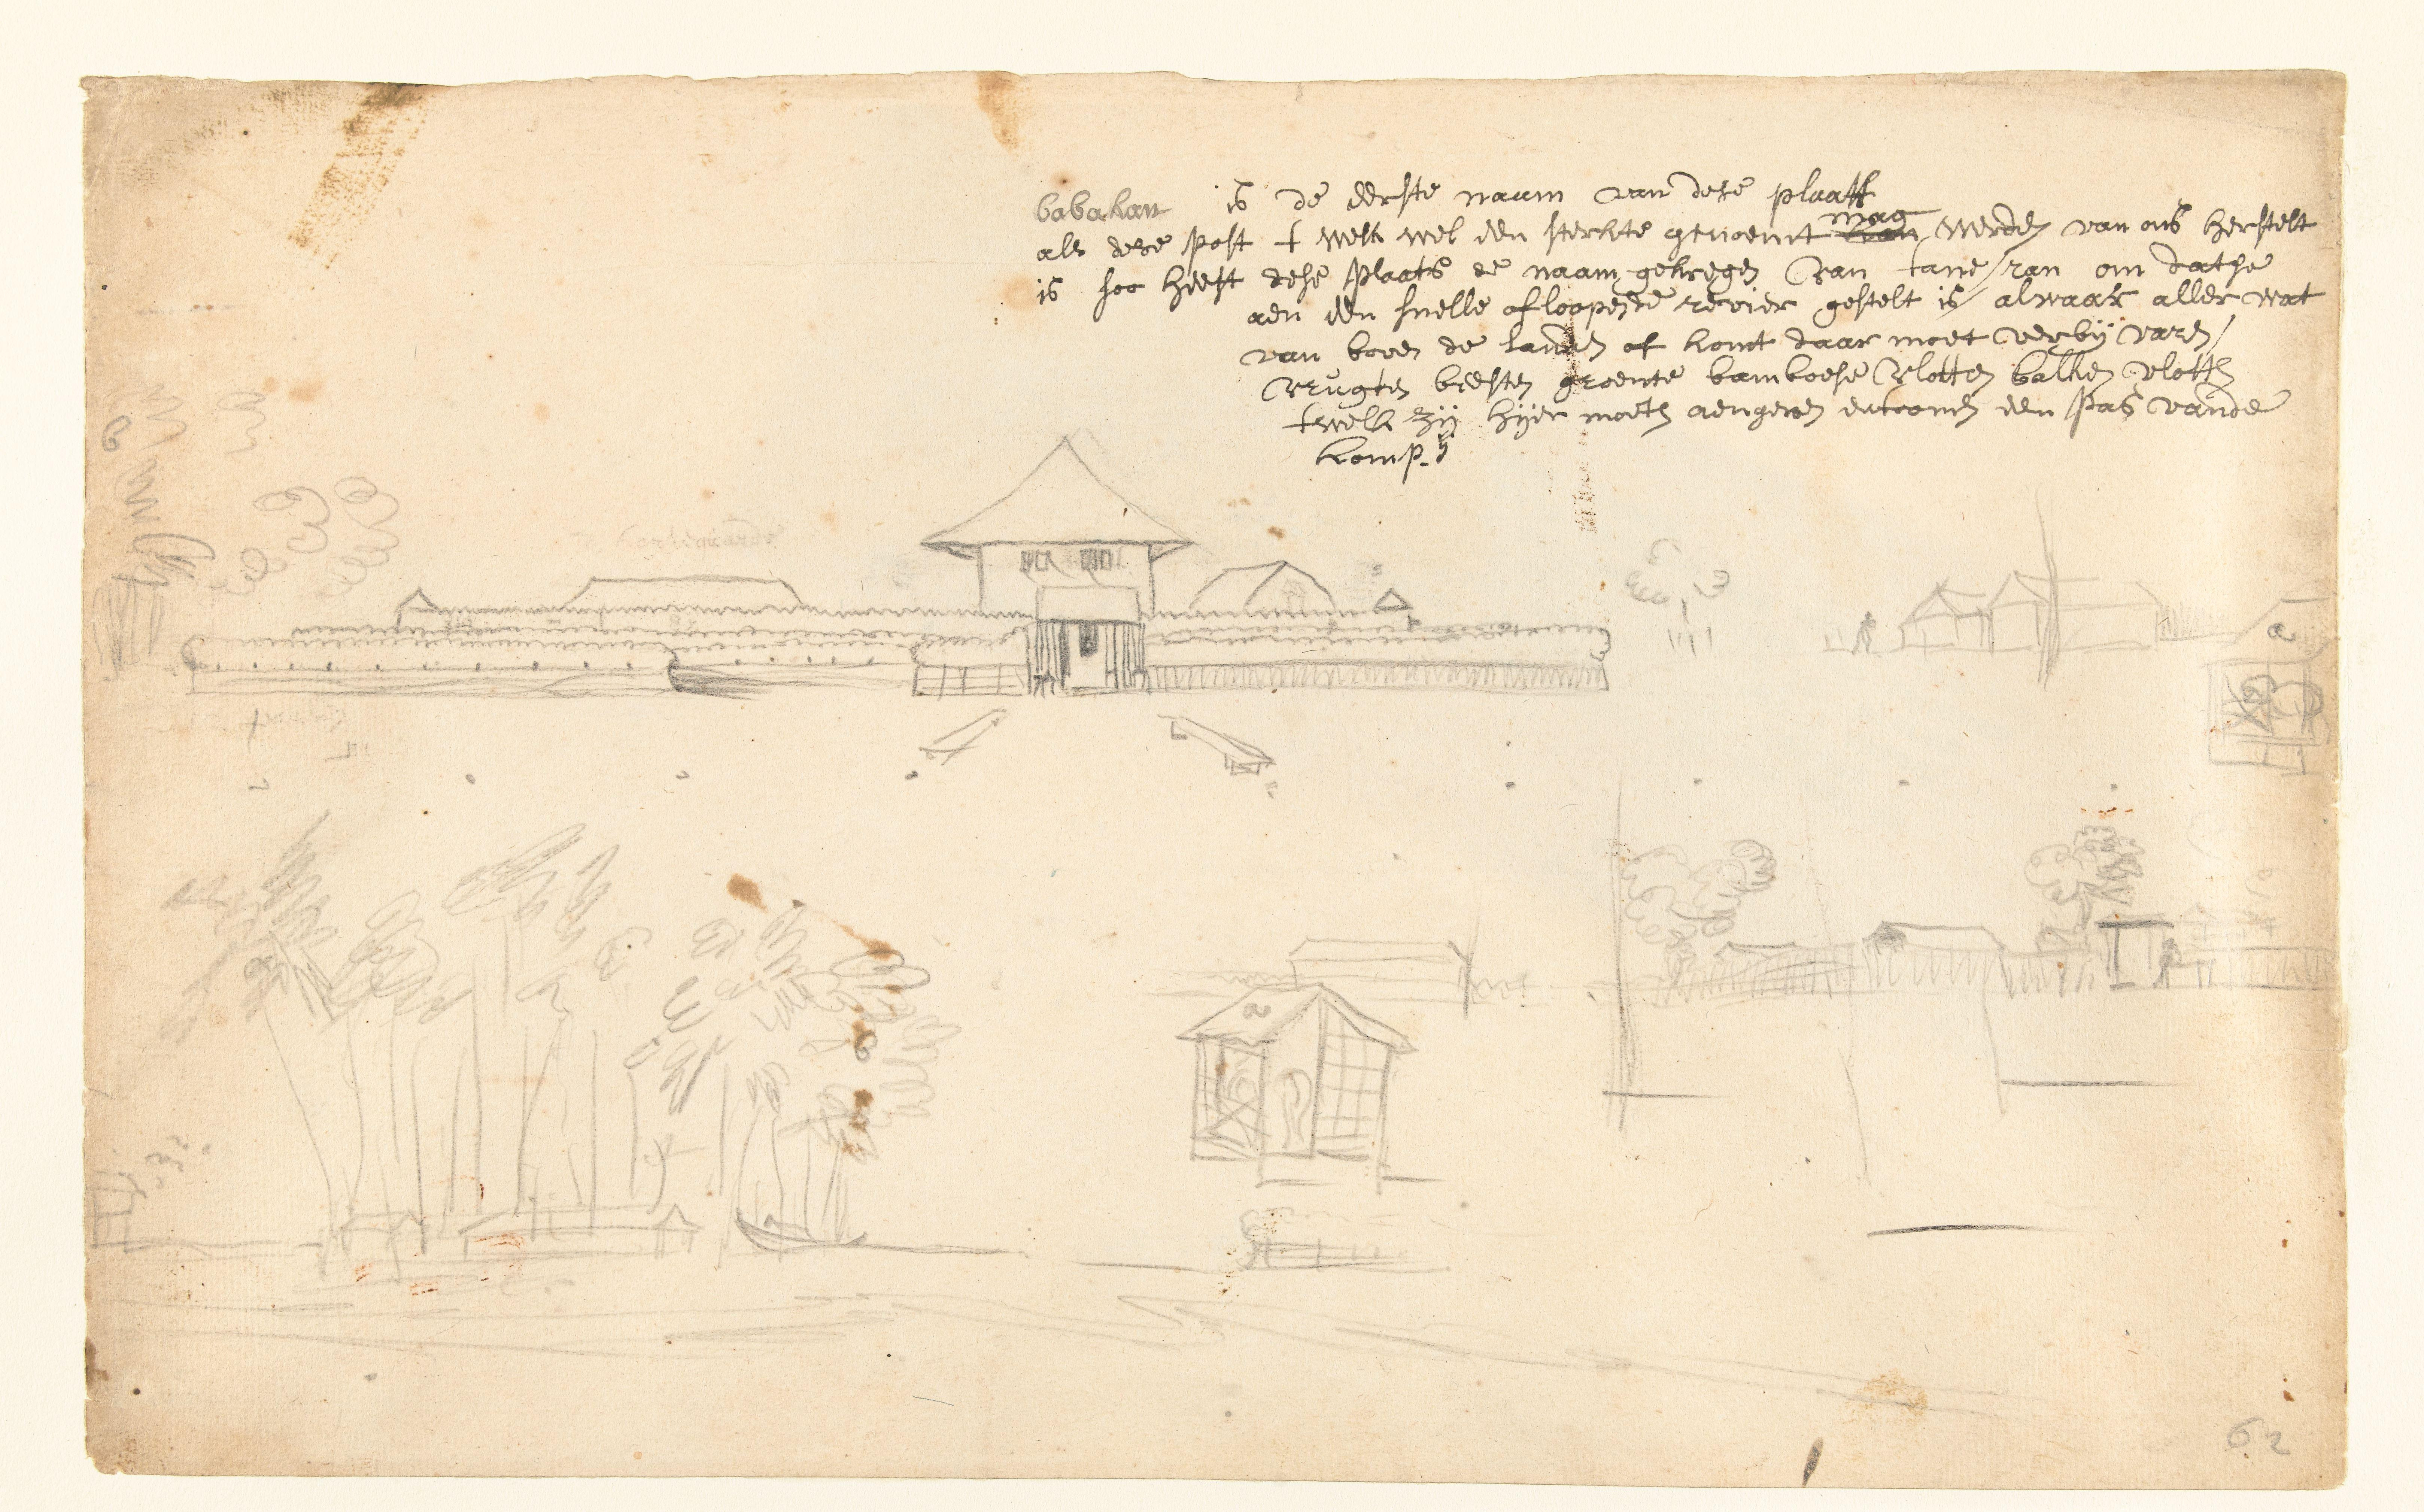 babakan is de eerste naam van dese plaats
als dese post t welk wel een sterkte genoemt kan mag werden van ons herstelt
is soo heeft dese plaats de naam gekregen van tane/ran om dat se
aen een snelle afloopende revier gestelt is / alwaar aller wat
van boven de landen af komt daar moet verbij varen /
vrugten beesten groente bamboese vlotten balken vlotten
twelk zij hijer moeten aengeven entoonen een pas vande
komp.ij
Kortegaarde
a
a
6
62